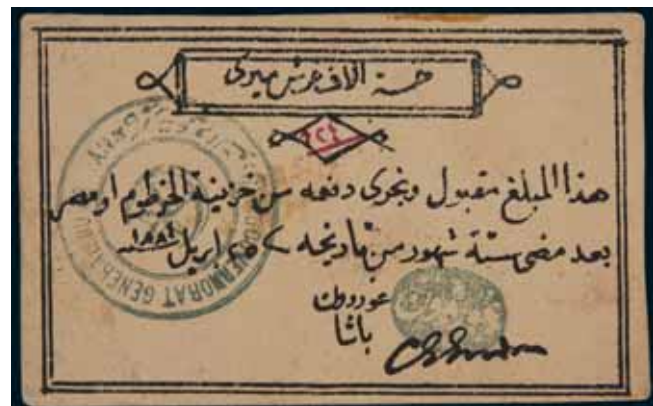 خمسة الاف غرش ميرى
هذا المبلغ مقبول ويجرى دفعه من خزينة الخرطوم او مصر
بعد مضى ستة شهور من تاريخه ٢٥ ابريل ١٨٨٤
غوردون
باشا
VERNORAT GENERAL